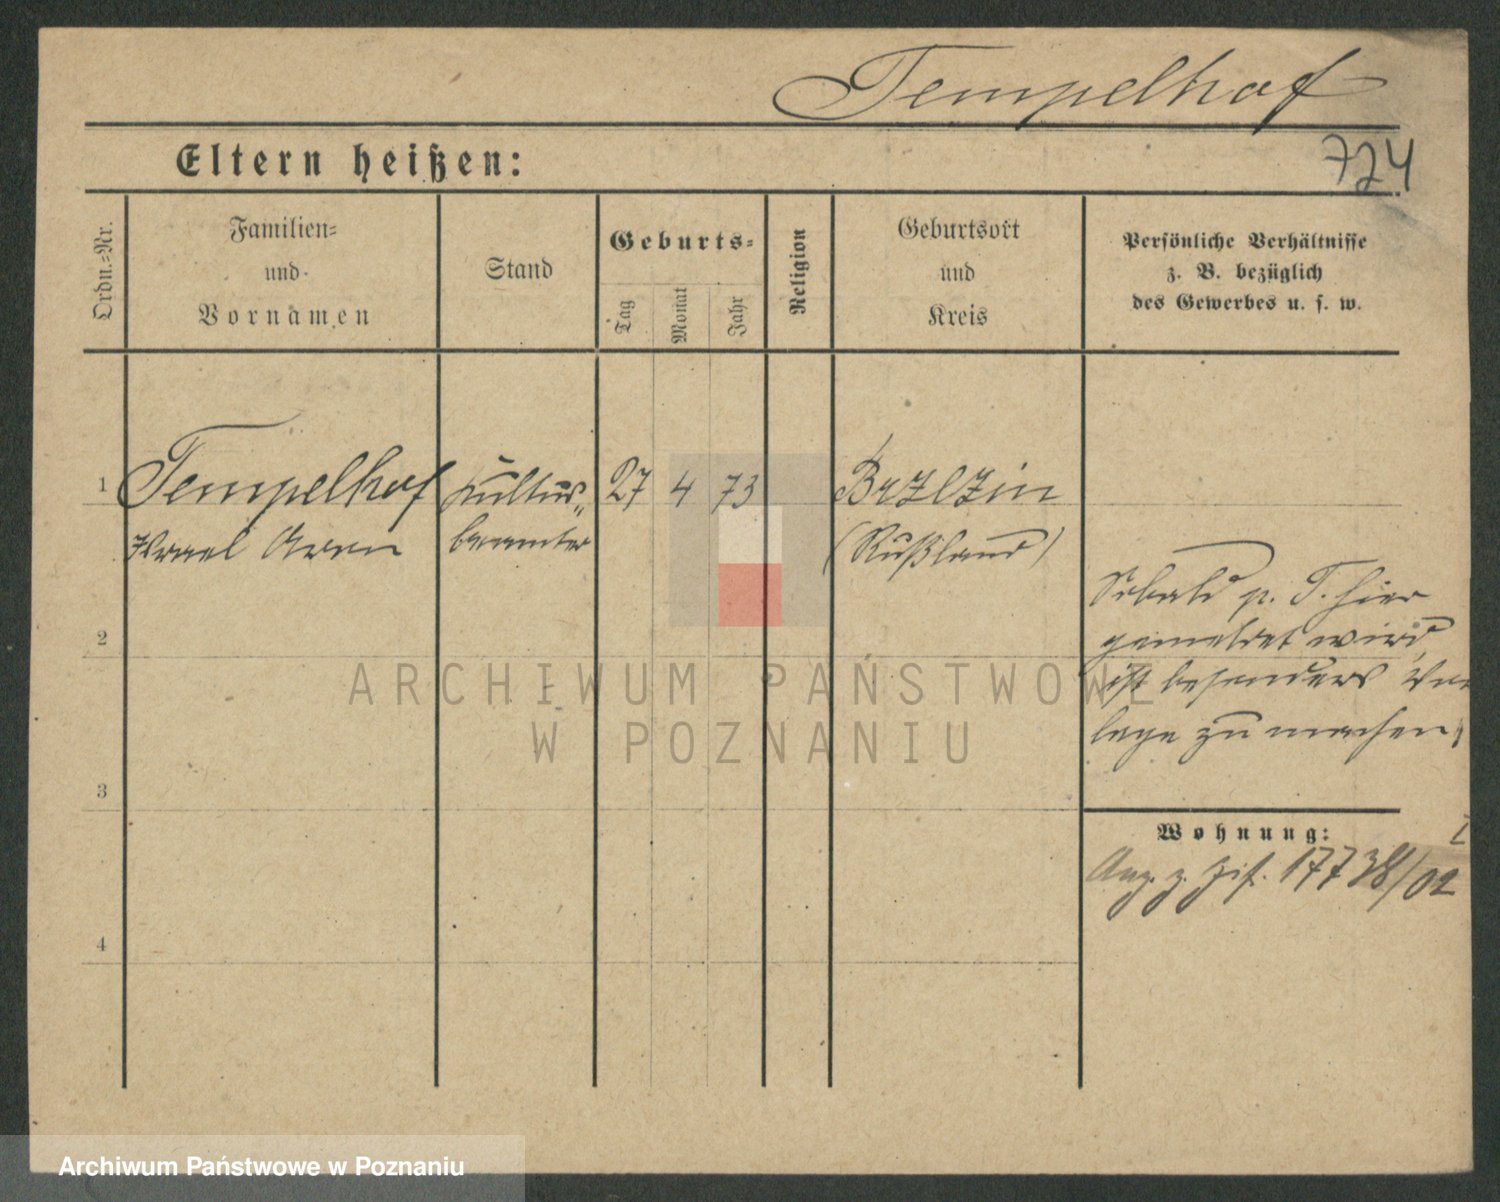 Tempelhof
724
Eltern heißen:
Ordn.-Nr.
Familien-
und
Vornamen
Stand
Geburts-
Tag
Monat
Jahr
Religion
Geburtsort
und
Kreis
Persönliche Verhältnisse
z. B. bezüglich
des Gewerbes u. s. w.
1
Tempelhof
Israel Aron
Kultus-
beamter
27
4
73
Brzezin
(Rußland)
Sobald p. T. hier
gemeldet wird,
ist besonders Vor
lage zu machen,
2
3
4
Wohnung:
Ang. z. 17738/02
ARCHIWUM PAŃSTWOWE
W POZNANIU
Archiwum Państwowe w Poznaniu